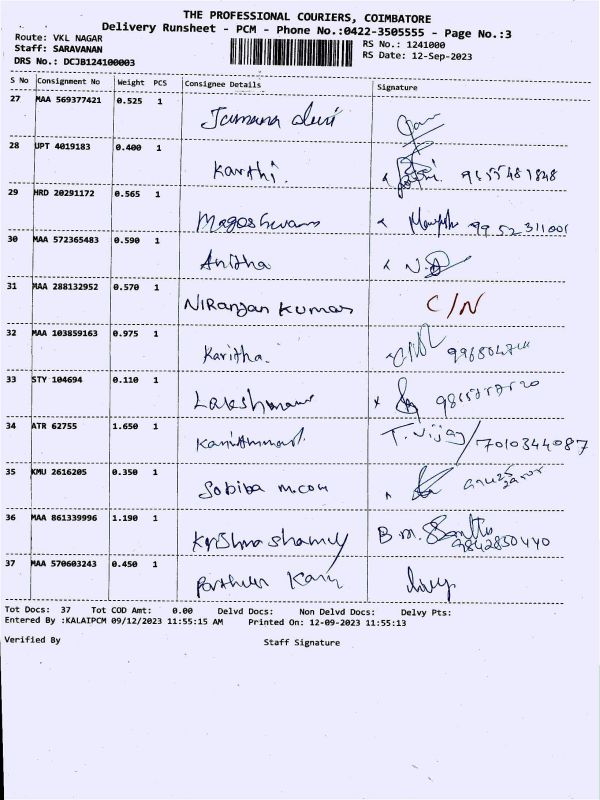 THE PROFESSIONAL COURIERS, COIMBATORE
Delivery Runsheet - PCM - Phone No.:0422-3505555 - Page No.:3
Route: VKL NAGAR
Staff: SARAVANAN
DRS No.: DCJB124100003
RS No.: 1241000
RS Date: 12-Sep-2023
S No Consignment No Weight PCS Consignee Details Signature
27 MAA 569377421 0.525 1 Jamuna
28 UPT 4019183 0.400 1 Karthi.
29 HRD 20291172 0.565 1 Mageshwars 99 52 311001
30 MAA 572365483 0.590 1 Anitha
31 MAA 288132952 0.570 1 NIRanjan Kumar C/N
32 MAA 103859163 0.975 1 Karitha.
33 STY 104694 0.110 1
34 ATR 62755 1.650 1 T. Vijay / 7010344087
35 KMU 2616205 0.350 1 Sobiba m.com
36 MAA 861339996 1.190 1 Krishna shamy B.m. 9842850440
37 MAA 570603243 0.450 1
Tot Docs: 37 Tot COD Amt: 0.00 Delvd Docs: Non Delvd Docs: Delvy Pts:
Entered By :KALAIPCM 09/12/2023 11:55:15 AM Printed On: 12-09-2023 11:55:13
Verified By Staff Signature